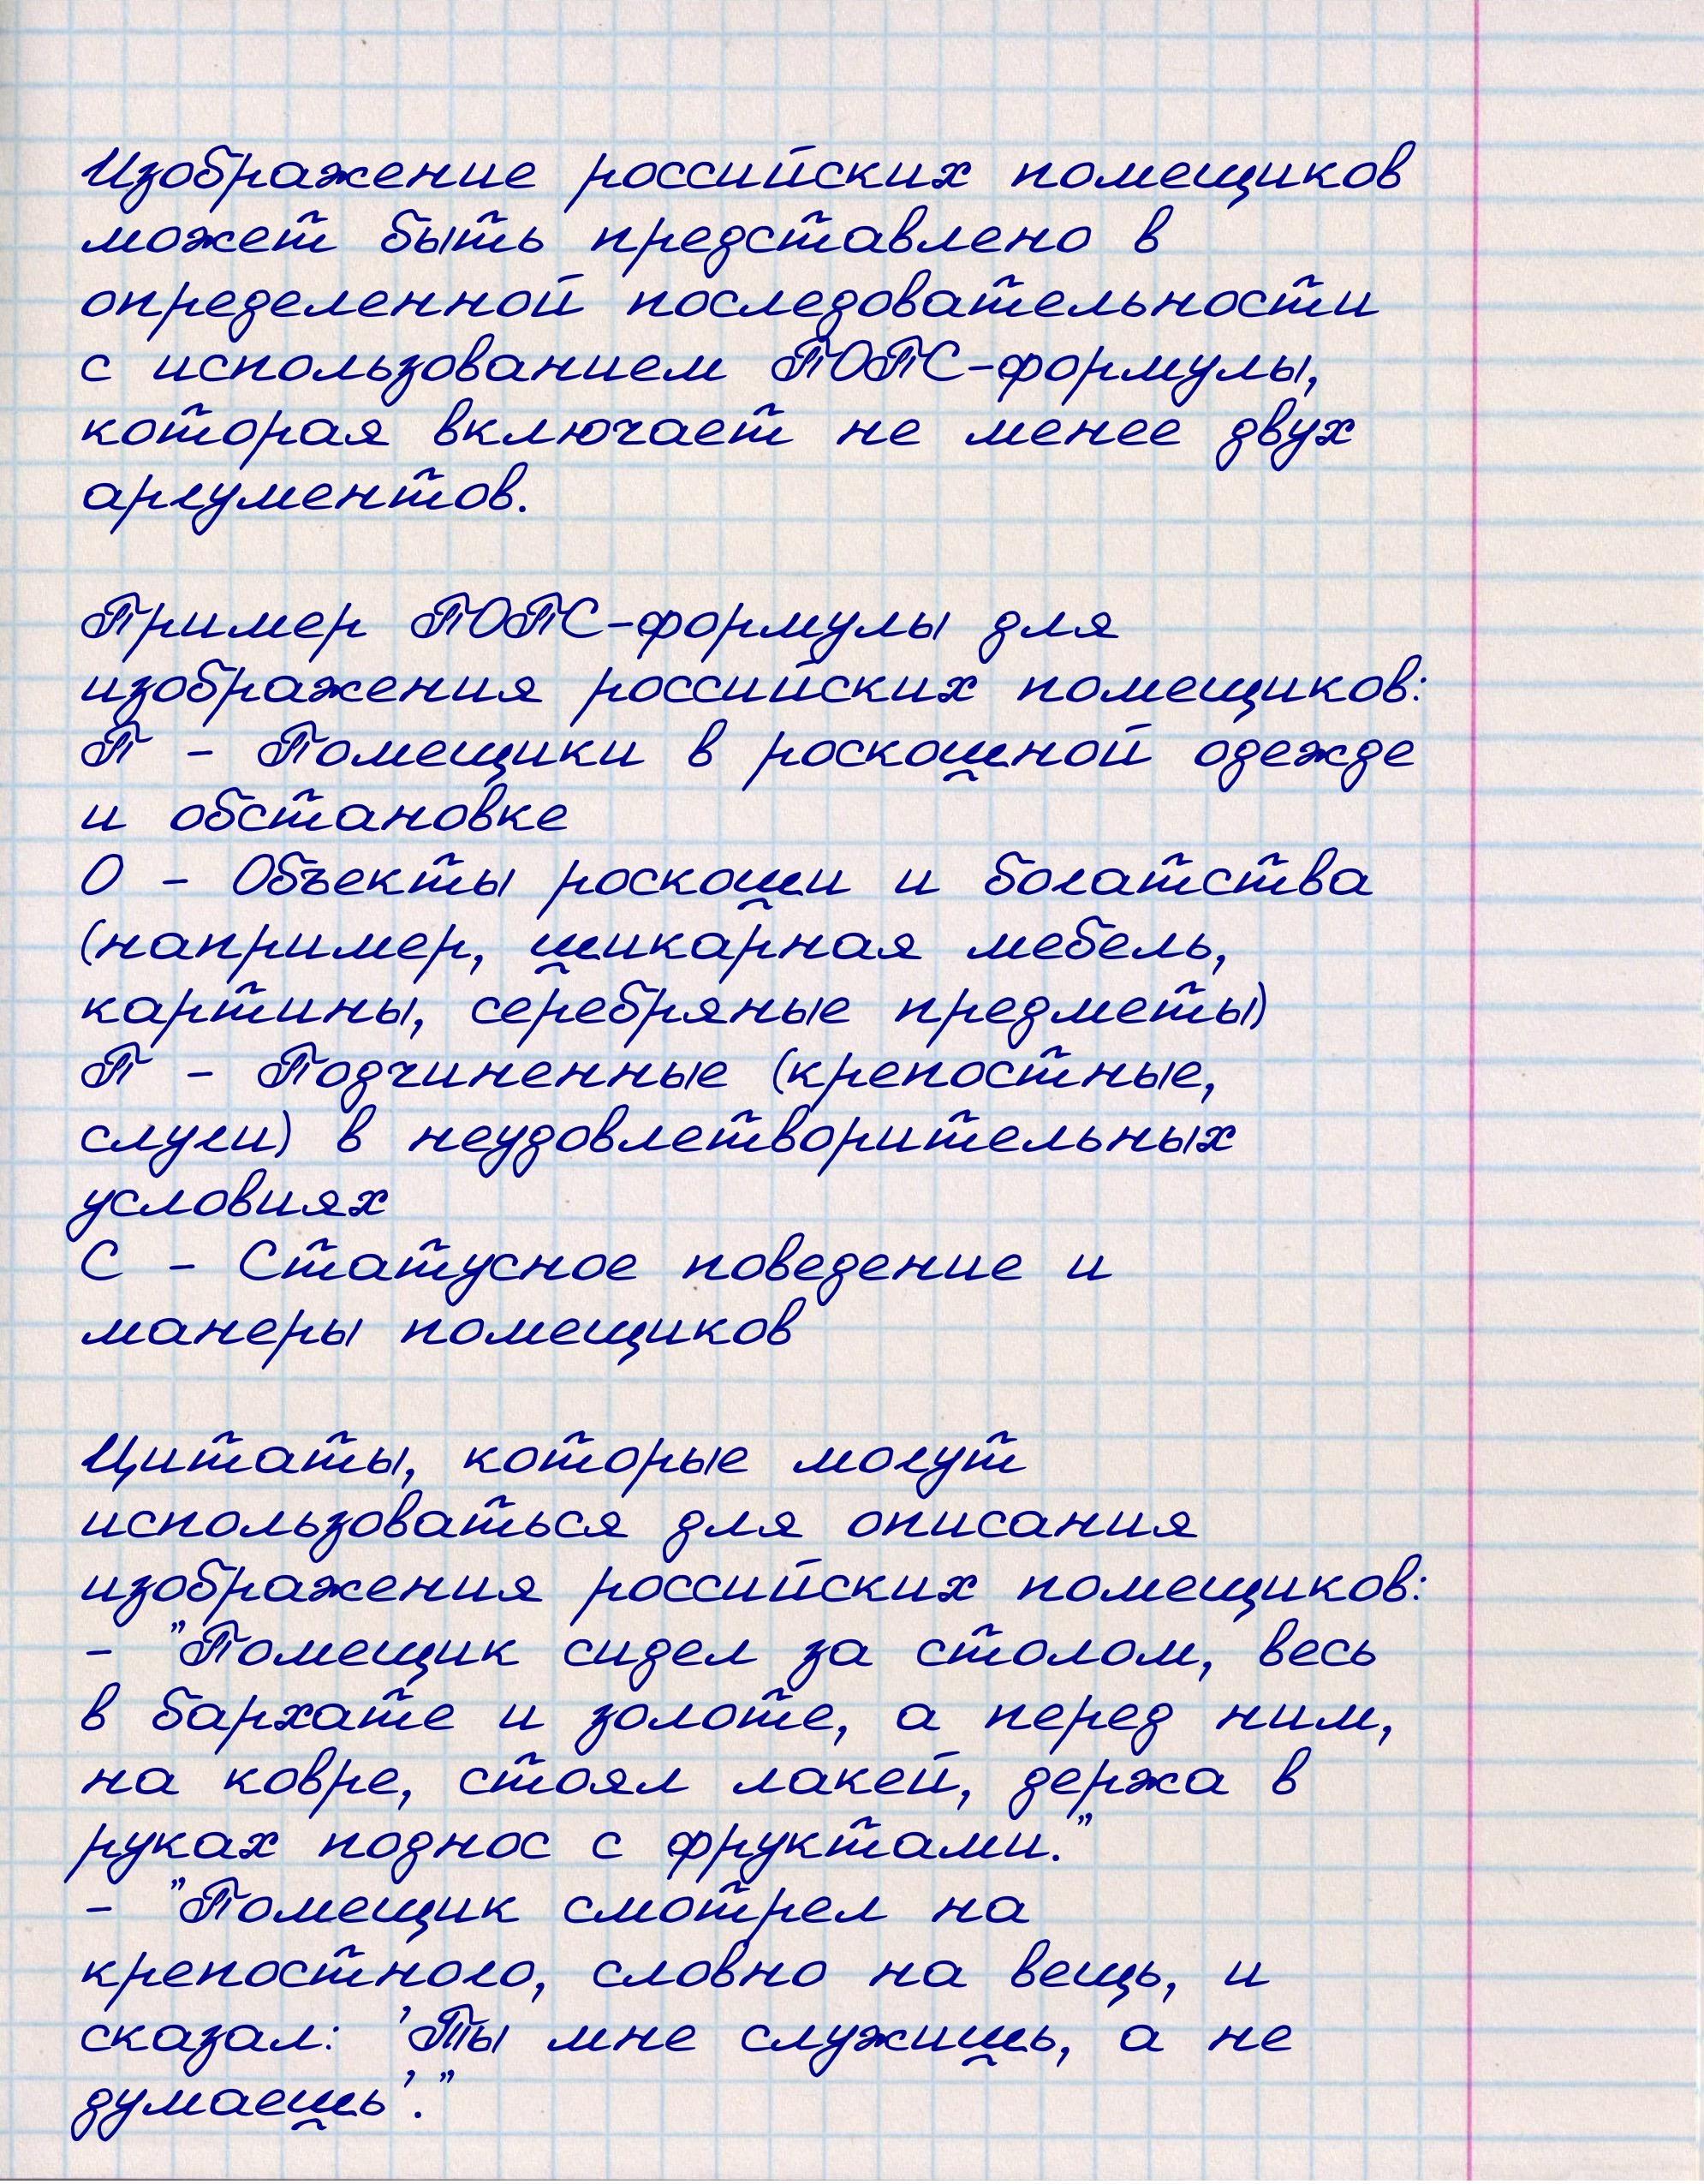 Изображение российских помещиков
может быть представлено в
определенной последовательности
с использованием ПОПС-формулы,
которая включает не менее двух
аргументов.
Пример ПОПС-формулы для
изображения российских помещиков:
П - Помещики в роскошной одежде
и обстановке
О - Объекты роскоши и богатства
(например, шикарная мебель,
картины, серебряные предметы)
П - Подчиненные (крепостные,
слуги) в неудовлетворительных
условиях
С - Статусное поведение и
манеры помещиков
Цитаты, которые могут
использоваться для описания
изображения российских помещиков:
- "Помещик сидел за столом, весь
в бархате и золоте, а перед ним,
на ковре, стоял лакей, держа в
руках поднос с фруктами."
- "Помещик смотрел на
крепостного, словно на вещь, и
сказал: 'Ты мне служишь, а не
думаешь'."